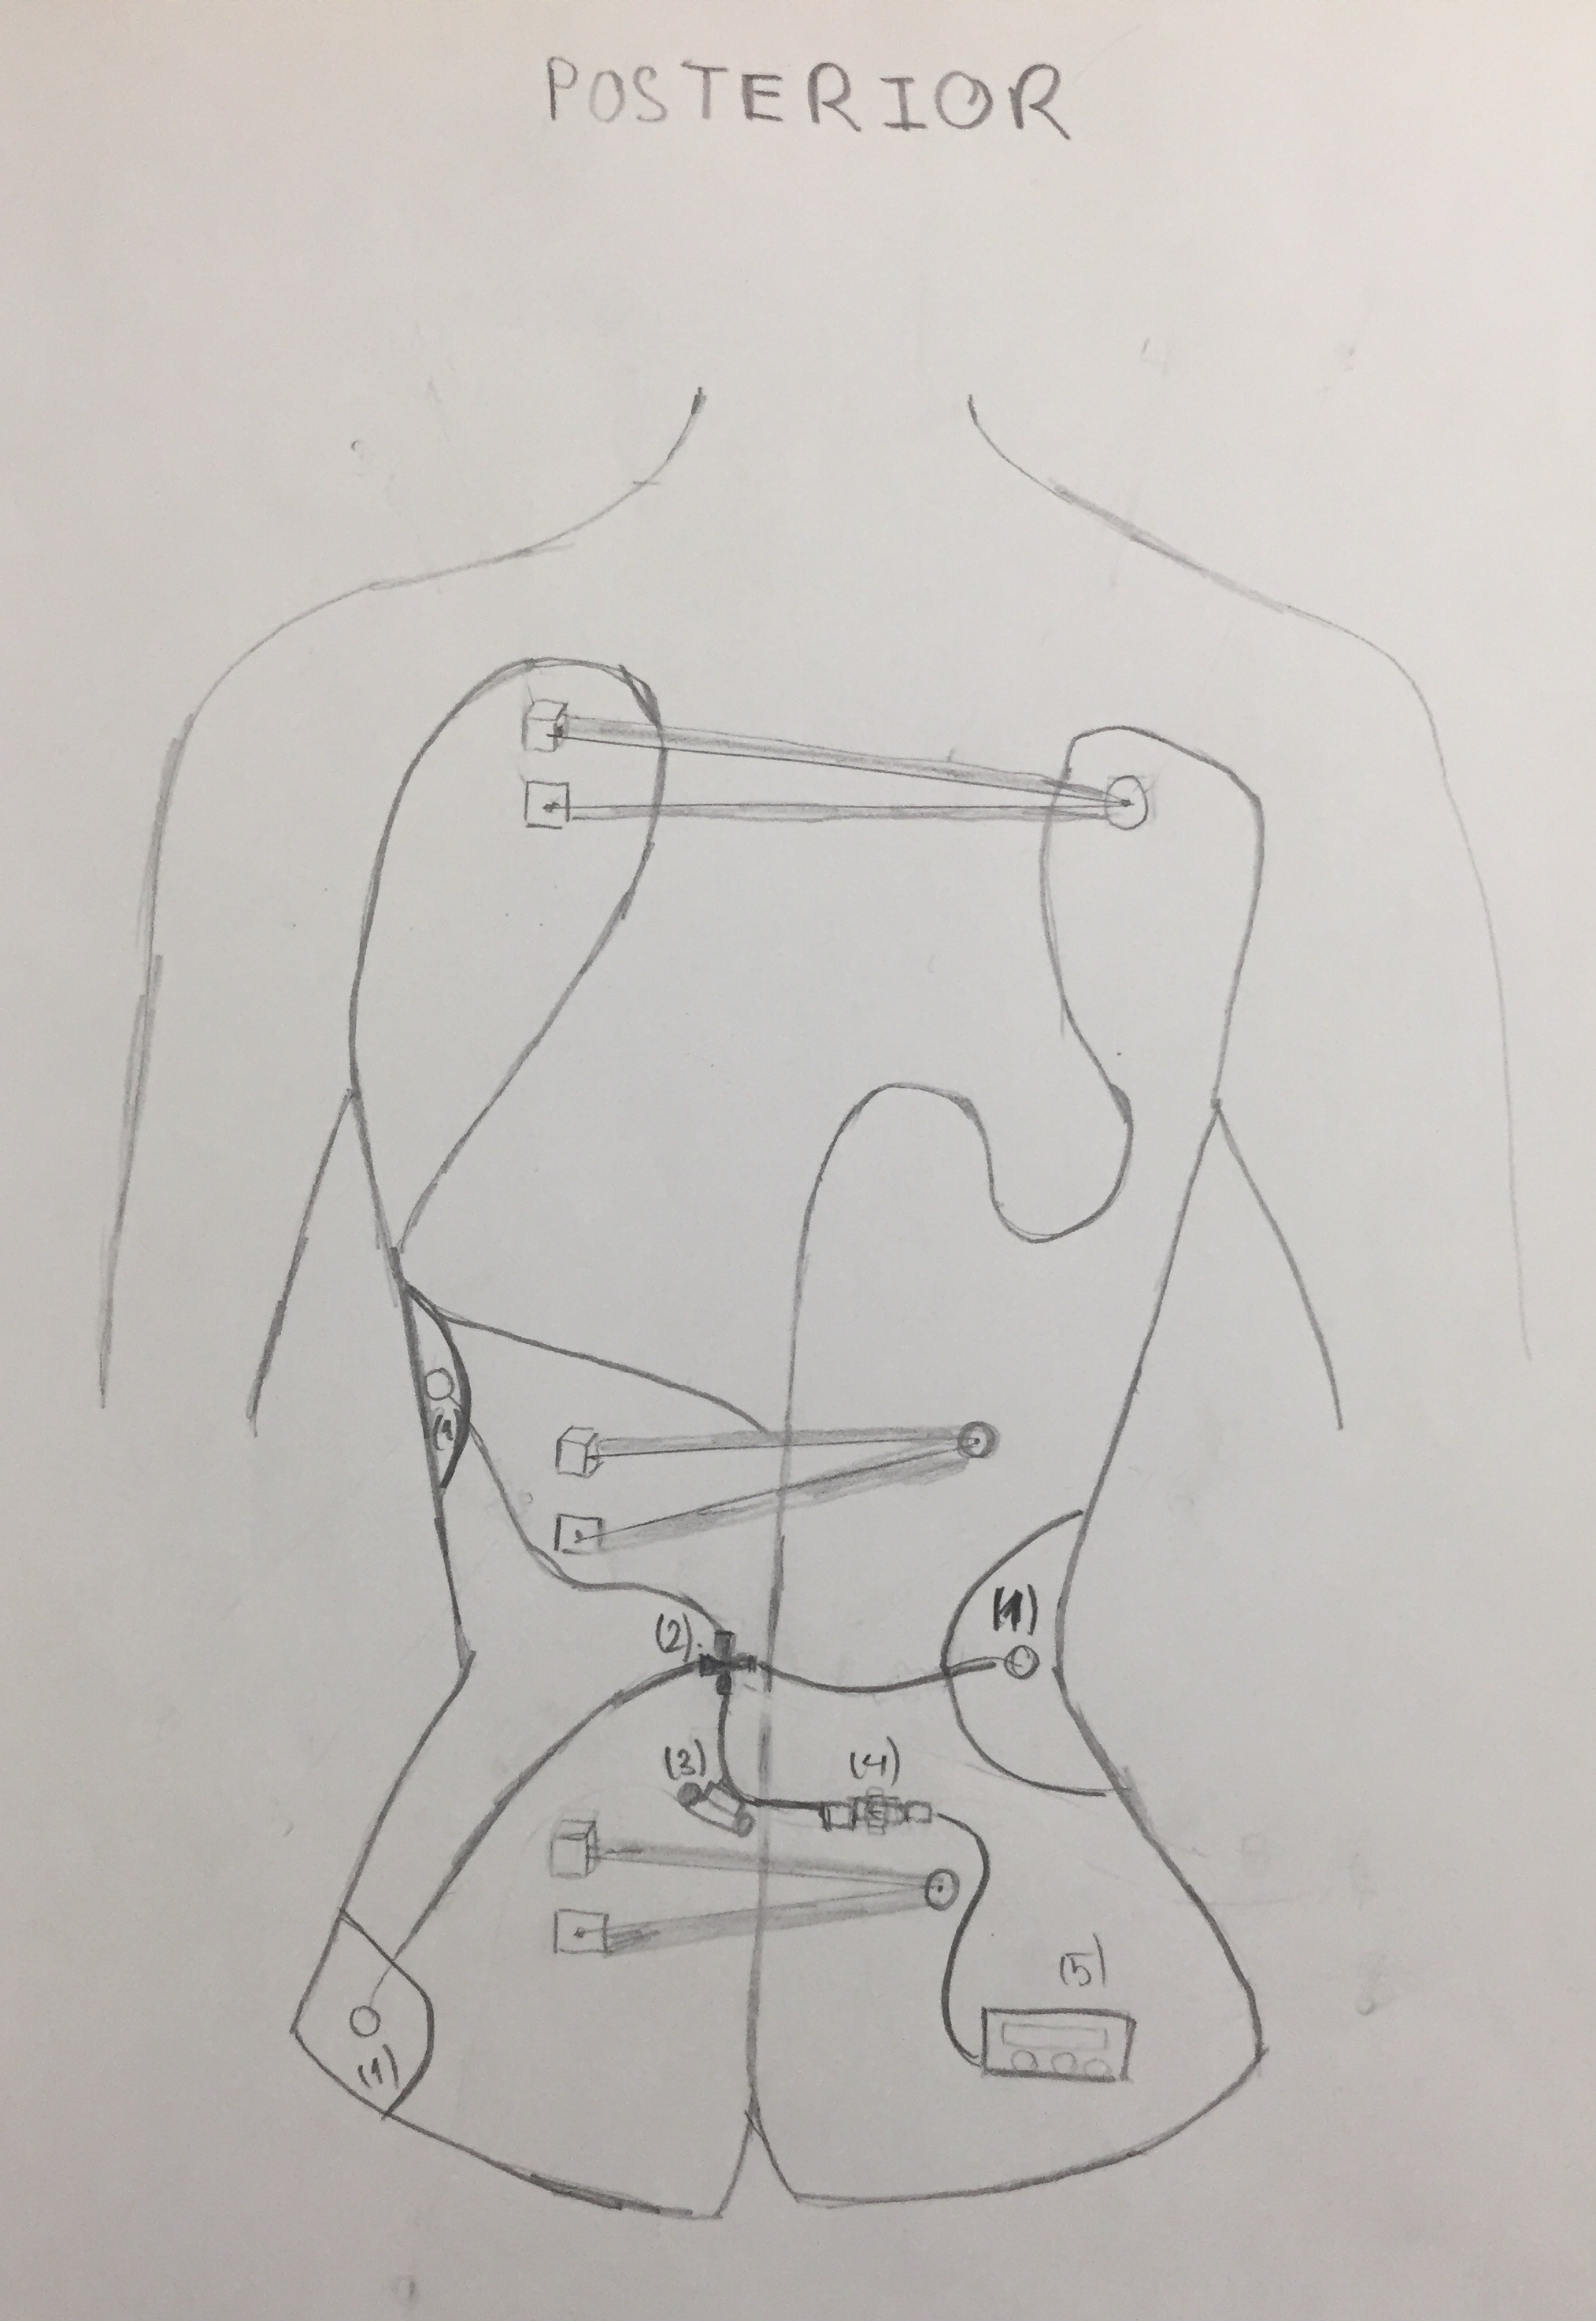 POSTERIOR
(1)
(1)
(2)
(3)
(4)
(5)
(1)